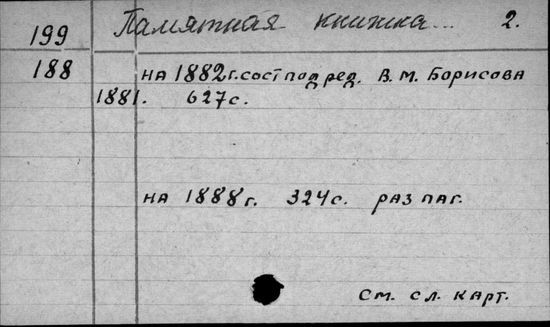 199 Памятная книжка... 2.
188 на 1882 г. сост под ред. В. М. Борисова
1881. 627 с.
на 1888 г. 324 с. раз паг.
См. сл. карт.